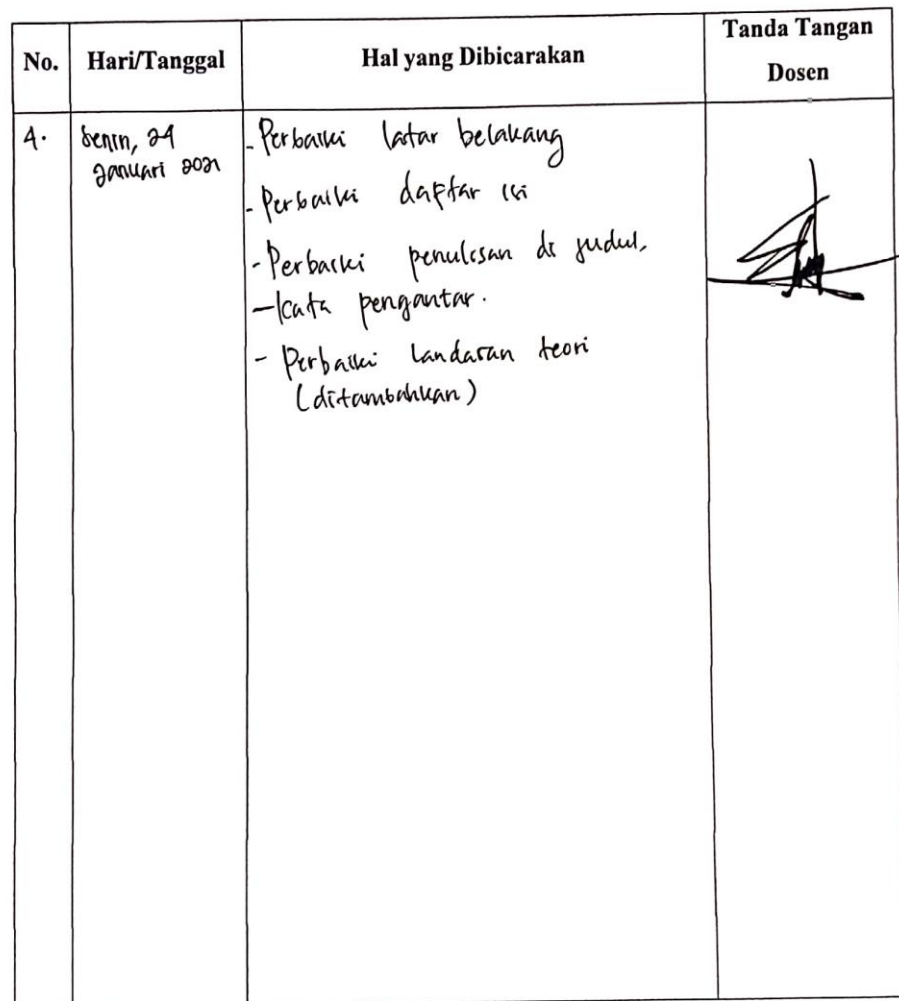 No.
Hari/Tanggal
Hal yang Dibicarakan
Tanda Tangan
Dosen
4.
Senin, 24
Januari
- Perbaiki latar belakang
- Perbaiki daftar isi
- Perbaiki penulisan di judul,
- kata pengantar.
- Perbaiki landasan teori
(ditambahkan)